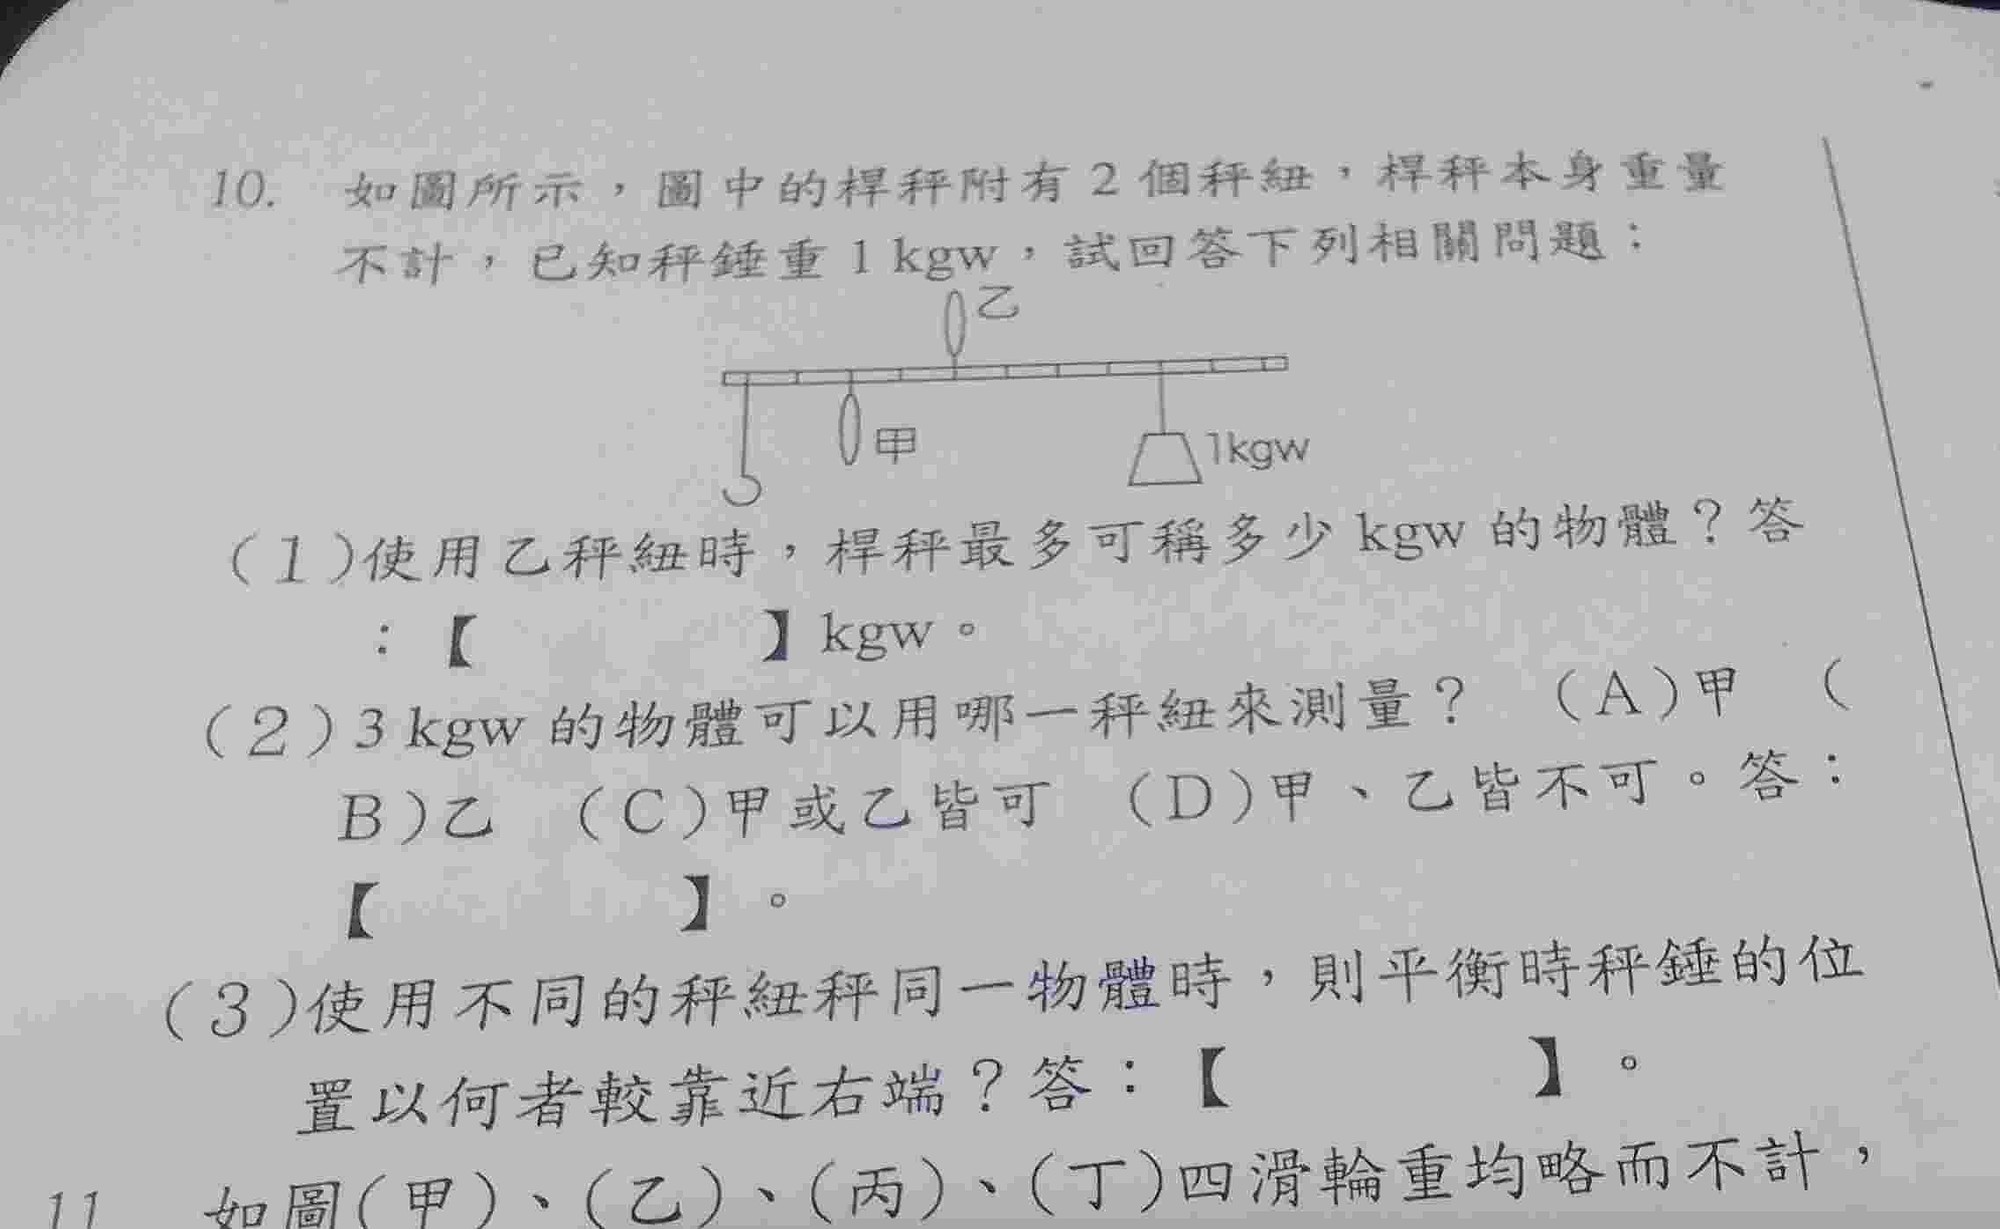 10. 如圖所示，圖中的桿秤附有 2 個秤紐，桿秤本身重量
不計，已知秤錘重 1 kgw，試回答下列相關問題：
乙
甲
1kgw
(1)使用乙秤紐時，桿秤最多可稱多少 kgw 的物體？答
：【 】kgw。
(2)3 kgw 的物體可以用哪一秤紐來測量？ (A)甲 (
B)乙 (C)甲或乙皆可 (D)甲、乙皆不可。答：
【 】。
(3)使用不同的秤紐秤同一物體時，則平衡時秤錘的位
置以何者較靠近右端？答：【 】。
11 如圖(甲)、(乙)、(丙)、(丁)四滑輪重均略而不計，